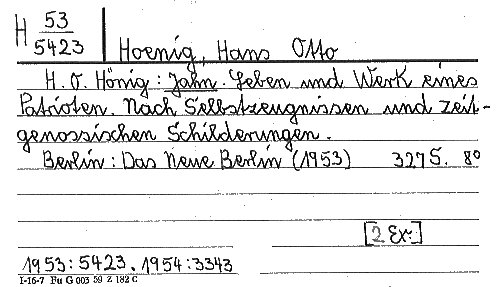 H 53
5423
Hoenig, Hans Otto
H. O. Hönig: Jahn. Leben und Werk eines
Patrioten. Nach Selbstzeugnissen und zeit-
genossischen Schilderungen.
Berlin: Das Neue Berlin (1953) 327 S. 8°
[2 Ex.]
1953:5423. 1954:3343
I-16-7 Fu G 003 59 Z 182 C